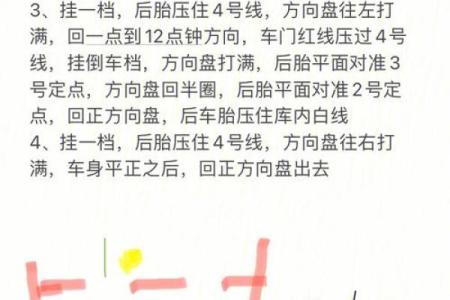 3、挂一档，后胎压住4号线，方向盘往左打
满，回一点到12点钟方向，车门红线压过4号
线，挂倒车档，方向盘打满，后胎平面对准3
号定点，方向盘回半圈，后胎平面对准2号定
点，回正方向盘，后车胎压住库内白线
4、挂一档，后胎压住4号线，方向盘往右打
满，车身平正之后，回正方向盘出去